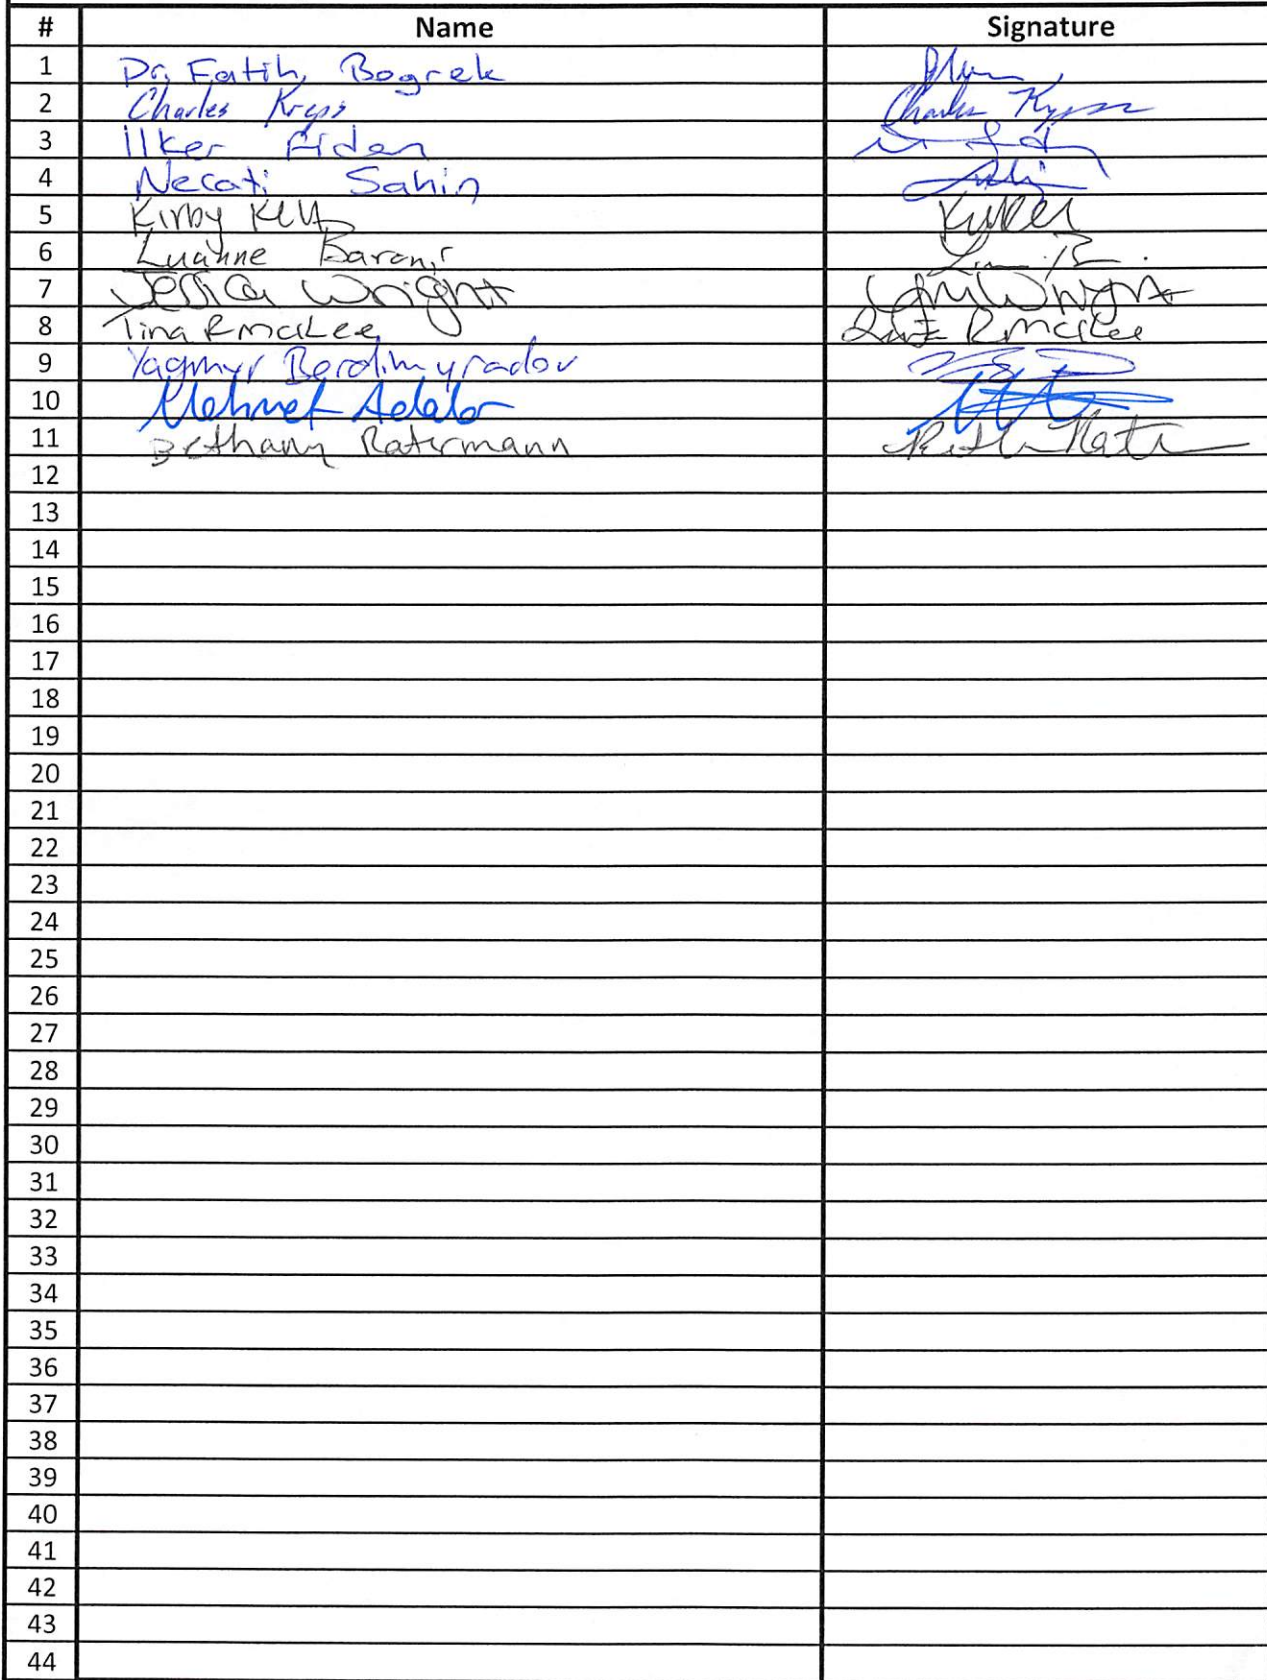 # Name Signature
1 Dr. Fatih Bogrek
2 Charles Kryss Charles Kryss
3 ilker Fidan
4 Necati Sahin
5 Kirby
6 Luanne
7 Jessica Wright Wright
8 Tina R McKee R McKee
9 Yagmyr Berdimyradov
10 Mehmet
11 Bethany Ratermann
12
13
14
15
16
17
18
19
20
21
22
23
24
25
26
27
28
29
30
31
32
33
34
35
36
37
38
39
40
41
42
43
44